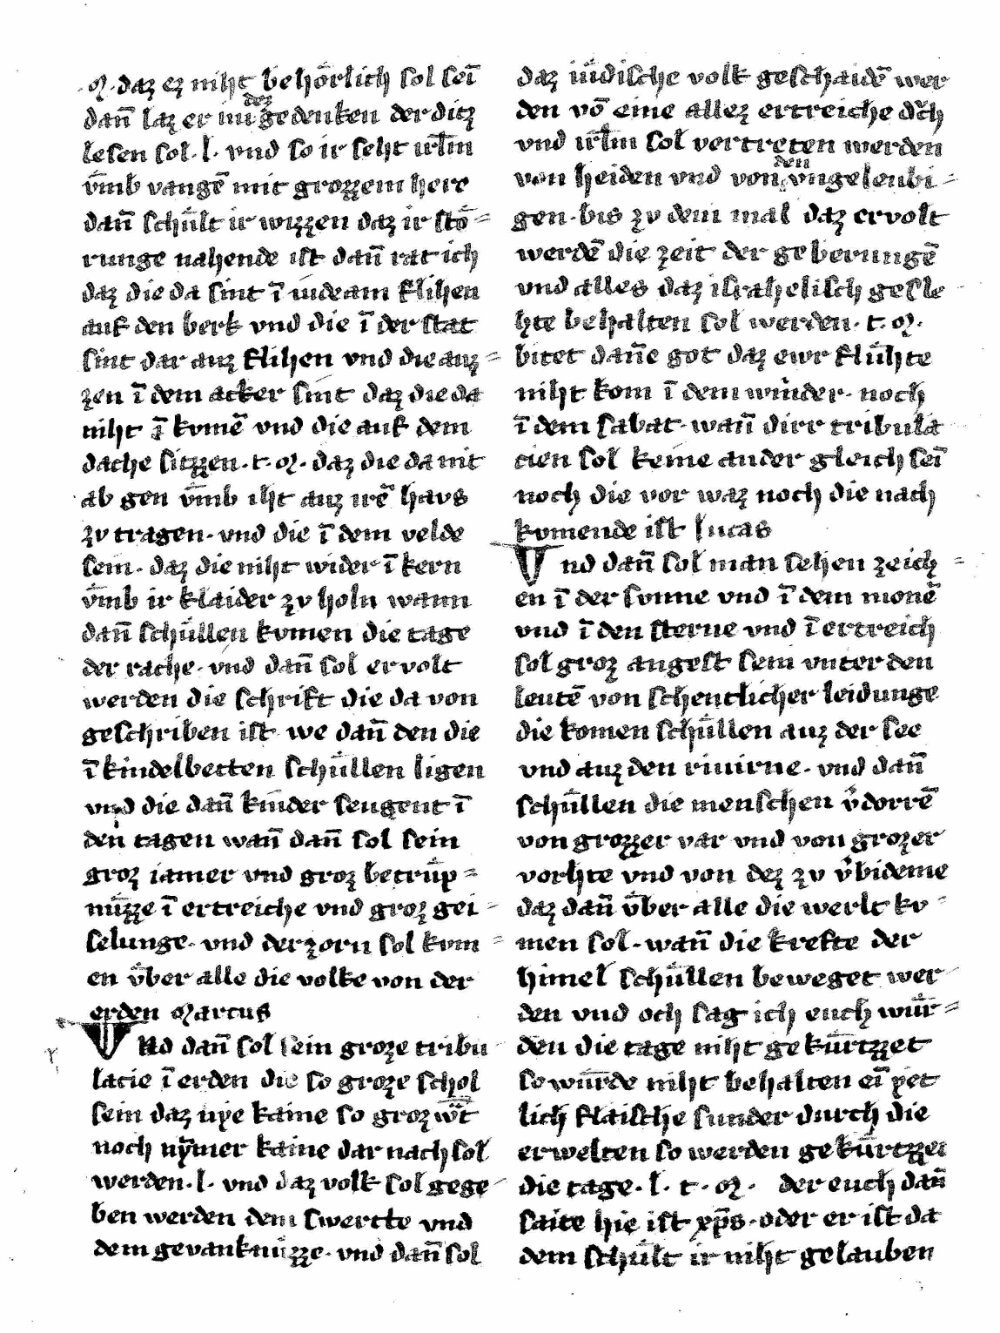 .M. daz ez niht behoͤrlich sol seī
dann̄ laz er im dez gedenken der ditz
lesen sol. l. vnd so ir seht irl̄m
v̄mb vangē mit grozzem here
dann̄ schuͤlt ir wizzen daz ir stoͤ=
runge nahende ist dann̄ rat ich
daz die da sint ī iudeam flihen
auf den berk vnd die ī der stat
sint dar auz flihen vnd die auz=
zen ī dem acker sint daz die da
niht ī kvmē vnd die auf dem
dache sitzzen. t. M. daz die da nit
ab gen v̄mb iht auz irē havs
zv tragen. vnd die ī dem velde
sein. daz die niht wider ī kern
v̄mb ir klaider zv holn wann
dann̄ schuͤllen kvmen die tage
der rache. vnd dann̄ sol er volt
werden die schrift die da von
geschriben ist. we dann̄ den die
ī kindelbetten schuͤllen ligen
vnd die dann̄ kinder seugent ī
den tagen wann̄ dann̄ sol sein
groz iamer vnd groz betruͤp=
nuͤzze ī ertreiche vnd groz gei=
selunge. vnd der zorn sol kvm=
en vͤber alle die volke von der
erden Marcus
VNd dann̄ sol sein groze tribu
lacie ī erden die so groze schol
sein daz nye kaine so groz wͤrt
noch nymer kaine dar nach sol
werden. l. vnd daz volk sol gege=
ben werden dem swertte vnd
dem gevanknuͤzze. vnd dann̄ sol
daz iuͤdische volk geschaidē wer
den vō eine allez ertreiche dͤch
vnd irl̄m sol vertreten werden
von heiden vnd von den vngelenbi=
gen. bis zv dem mal daz er volt
werdē die zeit der geberungē
vnd alles daz israhelisch gesle=
hte behalten sol werden. t. M.
bitet danne got daz ewr fluͤhte
niht kom ī dem winder. noch
ī dem sabat. wann̄ dirr tribula
cien sol keine ander gleich seī
noch die vor waz noch die nach
komende ist lucas
Vnd dann̄ sol man sehen zeich=
en ī der sunne vnd ī dem monē
vnd ī den sterne vnd ī ertreich
sol groz angest sein vnter den
leutē von schentlicher leidunge
die komen schuͤllen auz der see
vnd auz den riuirne. vnd dann̄
schuͤllen die menschen v̓dorrē
von grozzer var vnd von grozer
vorhte vnd von dez zv v̓bideme
daz dann̄ vͤber alle die werlt kv=
men sol. wann̄ die krefte der
himel schuͤllen beweget wer=
den vnd och sag ich euch wuͤr=
den die tage niht gekuͤrtzzet
so wuͤrde niht behalten eī yet
lich flaische sunder durch die
erwelten so werden gekuͤrtzzet
die tage. l. t. M. der euch dann̄
saite hie ist xp̄s. oder er ist da
dem schuͤlt ir niht gelauben